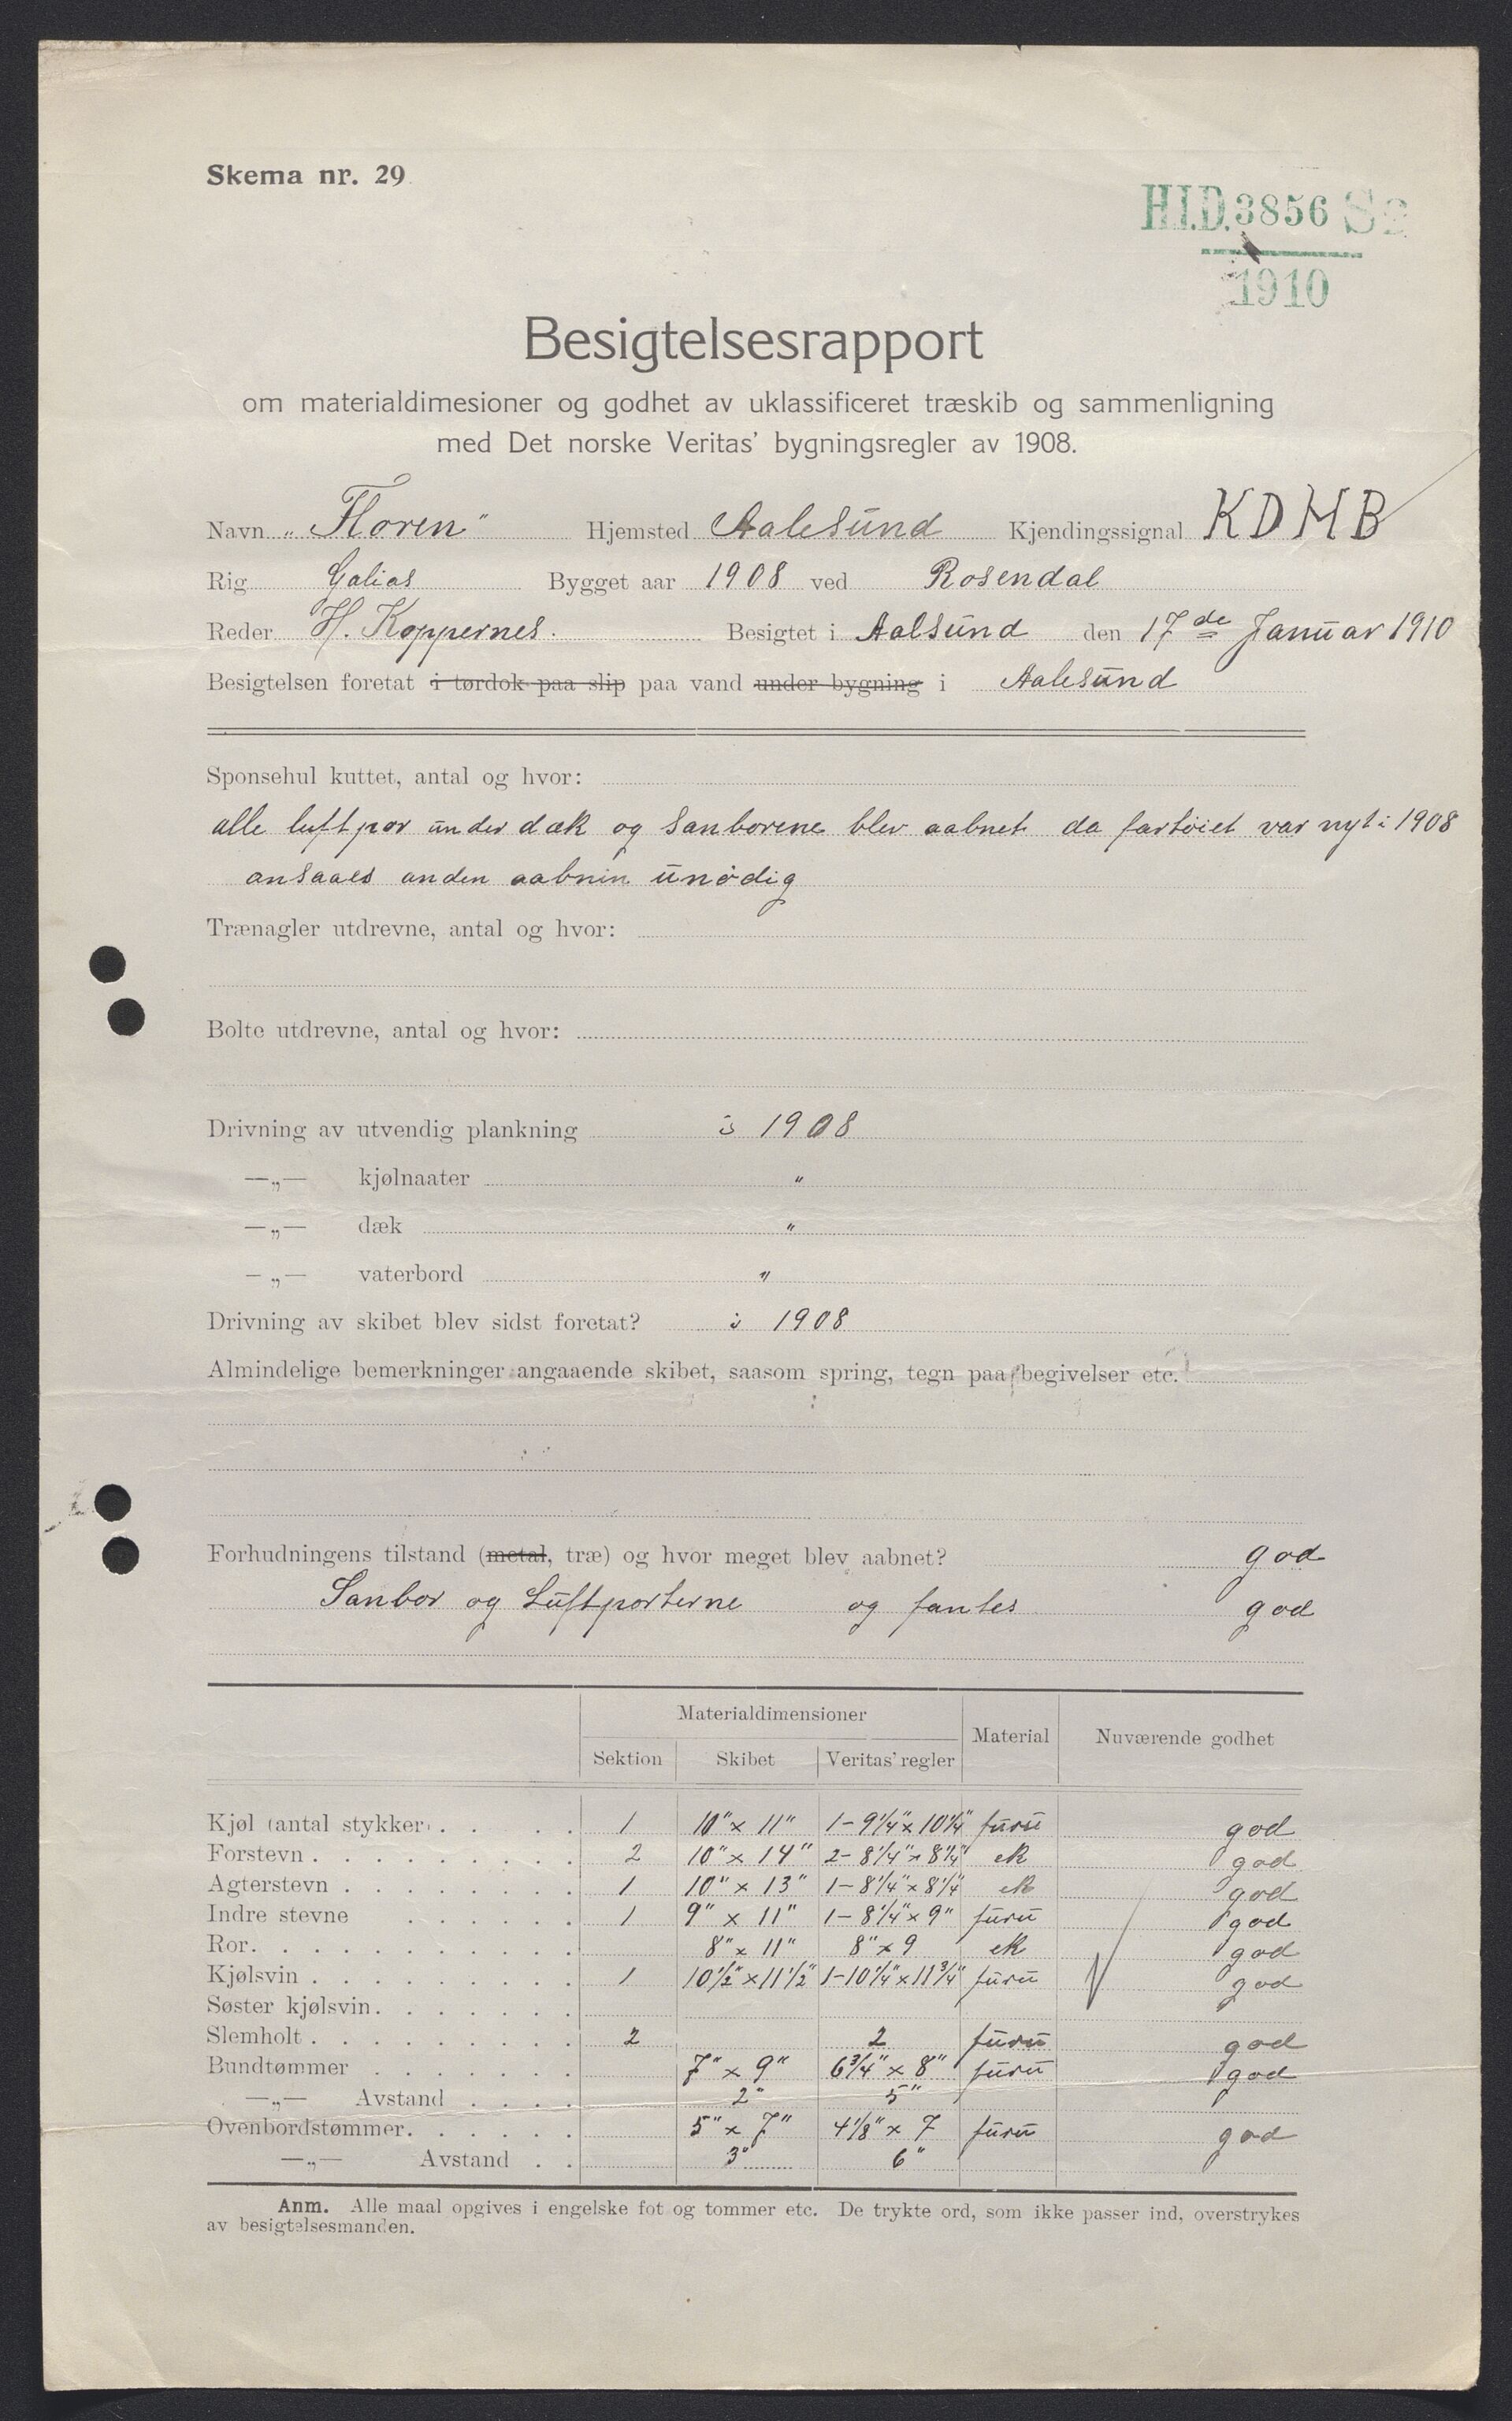 Skema nr. 29
H.I.D. 3856 S2
1910
Besigtelsesrapport
om materialdimesioner og godhet av uklassificeret træskib og sammenligning
med Det norske Veritas' bygningsregler av 1908.
Navn „Floren" Hjemsted Aalesund Kjendingssignal KDHB
Rig Galias Bygget aar 1908 ved Rosendal
Reder H. Koppernes. Besigtet i Aalsund den 17de Januar 1910
Besigtelsen foretat i tørdok paa slip paa vand under bygning i Aalesund
Sponsehul kuttet, antal og hvor:
alle luftpor under dæk og Sanborene blev aabnet da fartöiet var nyt i 1908
ansaaes anden aabnin unödig
Trænagler utdrevne, antal og hvor:
Bolte utdrevne, antal og hvor:
Drivning av utvendig plankning i 1908
—„— kjølnaater "
—„— dæk "
—„— vaterbord "
Drivning av skibet blev sidst foretat? i 1908
Almindelige bemerkninger angaaende skibet, saasom spring, tegn paa begivelser etc.
Forhudningens tilstand (metal, træ) og hvor meget blev aabnet? god
Sanbor og Luftporterne og fantes god
Materialdimensioner
Sektion Skibet Veritas' regler Material Nuværende godhet
Kjøl (antal stykker) 1 10" x 11" 1-9 1/4" x 10 1/4" furu god
Forstevn 2 10" x 14" 2-8 1/4" x 8 1/4" ek god
Agterstevn 1 10" x 13" 1-8 1/4" x 8 1/4" ek god
Indre stevne 1 9" x 11" 1-8 1/4" x 9" furu god
Ror 8" x 11" 8" x 9 ek god
Kjølsvin 1 10 1/2" x 11 1/2" 1-10 1/4" x 11 3/4" furu god
Søster kjølsvin
Slemholt 2 2 furu god
Bundtømmer 7" x 9" 6 3/4" x 8" furu god
—„— Avstand 2" 5"
Ovenbordstømmer 5" x 7" 4 1/8" x 7 furu god
—„— Avstand 3" 6"
Anm. Alle maal opgives i engelske fot og tommer etc. De trykte ord, som ikke passer ind, overstrykes
av besigtelsesmanden.